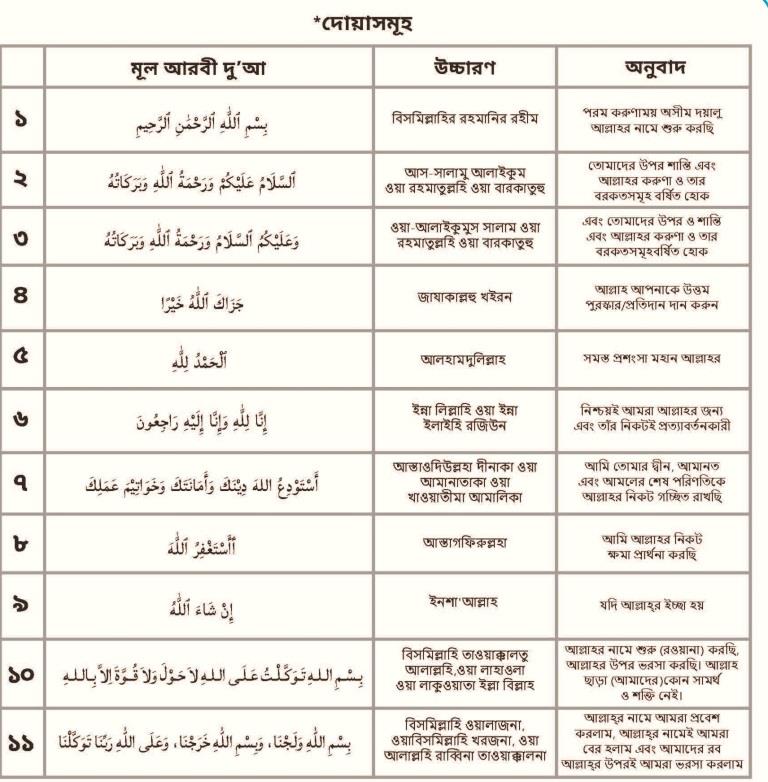 *দোয়াসমূহ
মূল আরবী দু'আ
উচ্চারণ
অনুবাদ
১
بِسْمِ ٱللَّهِ ٱلرَّحْمَٰنِ ٱلرَّحِيمِ
বিসমিল্লাহির রহমানির রহীম
পরম করুণাময় অসীম দয়ালু
আল্লাহর নামে শুরু করছি
২
ٱلسَّلَامُ عَلَيْكُمْ وَرَحْمَةُ ٱللَّهِ وَبَرَكَاتُهُ
আস-সালামু আলাইকুম
ওয়া রহমাতুল্লহি ওয়া বারকাতুহু
তোমাদের উপর শান্তি এবং
আল্লাহর করুণা ও তার
বরকতসমূহ বর্ষিত হোক
৩
وَعَلَيْكُمُ ٱلسَّلَامُ وَرَحْمَةُ ٱللَّهِ وَبَرَكَاتُهُ
ওয়া-আলাইকুমুস সালাম ওয়া
রহমাতুল্লহি ওয়া বারকাতুহু
এবং তোমাদের উপর ও শান্তি
এবং আল্লাহর করুণা ও তার
বরকতসমূহবর্ষিত হোক
৪
جَزَاكَ ٱللَّهُ خَيْرًا
জাযাকাল্লহু খইরন
আল্লাহ আপনাকে উত্তম
পুরস্কার/প্রতিদান দান করুন
৫
ٱلْحَمْدُ لِلَّهِ
আলহামদুলিল্লাহ
সমস্ত প্রশংসা মহান আল্লাহর
৬
إِنَّا لِلَّهِ وَإِنَّا إِلَيْهِ رَاجِعُونَ
ইন্না লিল্লাহি ওয়া ইন্না
ইলাইহি রজিউন
নিশ্চয়ই আমরা আল্লাহর জন্য
এবং তাঁর নিকটই প্রত্যাবর্তনকারী
৭
أَسْتَوْدِعُ اللهَ دِيْنَكَ وَأَمَانَتَكَ وَخَوَاتِيْمَ عَمَلِكَ
আস্তাওদিউল্লহা দীনাকা ওয়া
আমানাতাকা ওয়া
খাওয়াতীমা আমালিকা
আমি তোমার দ্বীন, আমানত
এবং আমলের শেষ পরিণতিকে
আল্লাহর নিকট গচ্ছিত রাখছি
৮
أَسْتَغْفِرُ ٱللَّهَ
আস্তাগফিরুল্লহা
আমি আল্লাহর নিকট
ক্ষমা প্রার্থনা করছি
৯
إِنْ شَاءَ ٱللَّهُ
ইনশা'আল্লাহ
যদি আল্লাহ্‌র ইচ্ছা হয়
১০
بِسْمِ اللهِ تَوَكَّلْتُ عَلَى اللهِ لاَ حَوْلَ وَلاَ قُوَّةَ اِلاَّ بِاللهِ
বিসমিল্লাহি তাওয়াক্কালতু
আলাল্লহি,ওয়া লাহাওলা
ওয়া লাকুওয়াতা ইল্লা বিল্লাহ
আল্লাহর নামে শুরু (রওয়ানা) করছি,
আল্লাহর উপর ভরসা করছি। আল্লাহ
ছাড়া (আমাদের)কোন সামর্থ
ও শক্তি নেই।
১১
بِسْمِ اللهِ وَلَجْنَا، وَبِسْمِ اللهِ خَرَجْنَا، وَعَلَى اللهِ رَبِّنَا تَوَكَّلْنَا
বিসমিল্লাহি ওয়ালাজনা,
ওয়াবিসমিল্লাহি খরজনা, ওয়া
আলাল্লহি রাব্বিনা তাওয়াক্কালনা
আল্লাহ্‌র নামে আমরা প্রবেশ
করলাম, আল্লাহ্‌র নামেই আমরা
বের হলাম এবং আমাদের রব
আল্লাহ্‌র উপরই আমরা ভরসা করলাম